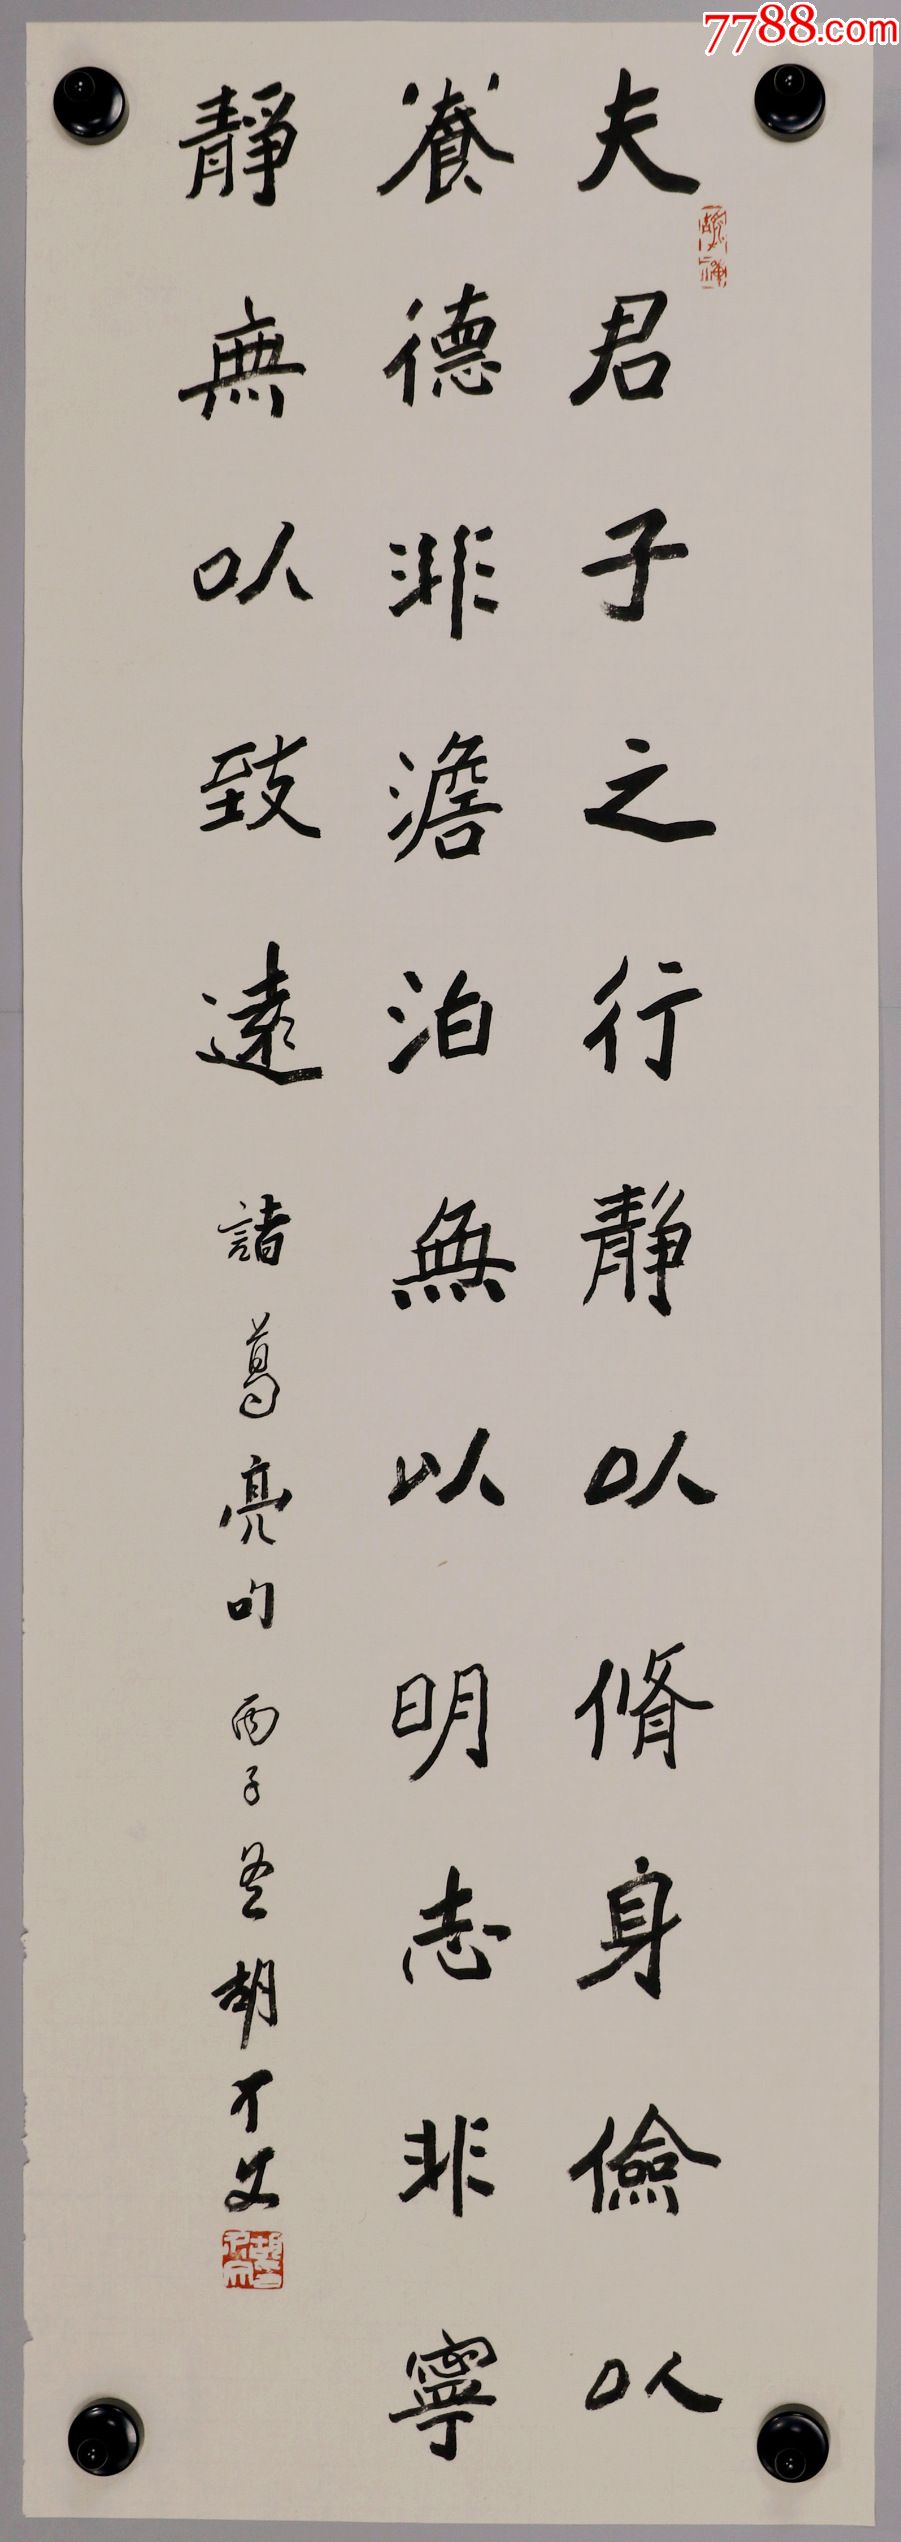 7788.com
夫君子之行静以脩身儉以
養德非澹泊無以明志非寧
靜無以致遠 諸葛亮句 丙子冬胡